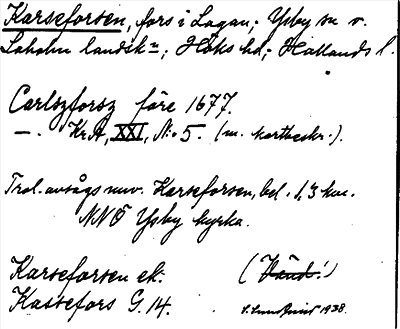 Karseforsen, fors i Lagan; Ysby sn v.
Laholm landsk:n; Höks hd; Hallands l.
Carlszforsz före 1677.
—. Kr.A, XXI, N:o 5. (m. kartbeskr.).
Trol. avsågs nuv. Karseforsen, bel. 1,3 km.
NNÖ Ysby kyrka.
Karseforsen ek. (Händ!)
Kassefors G. 14. S. 1938.